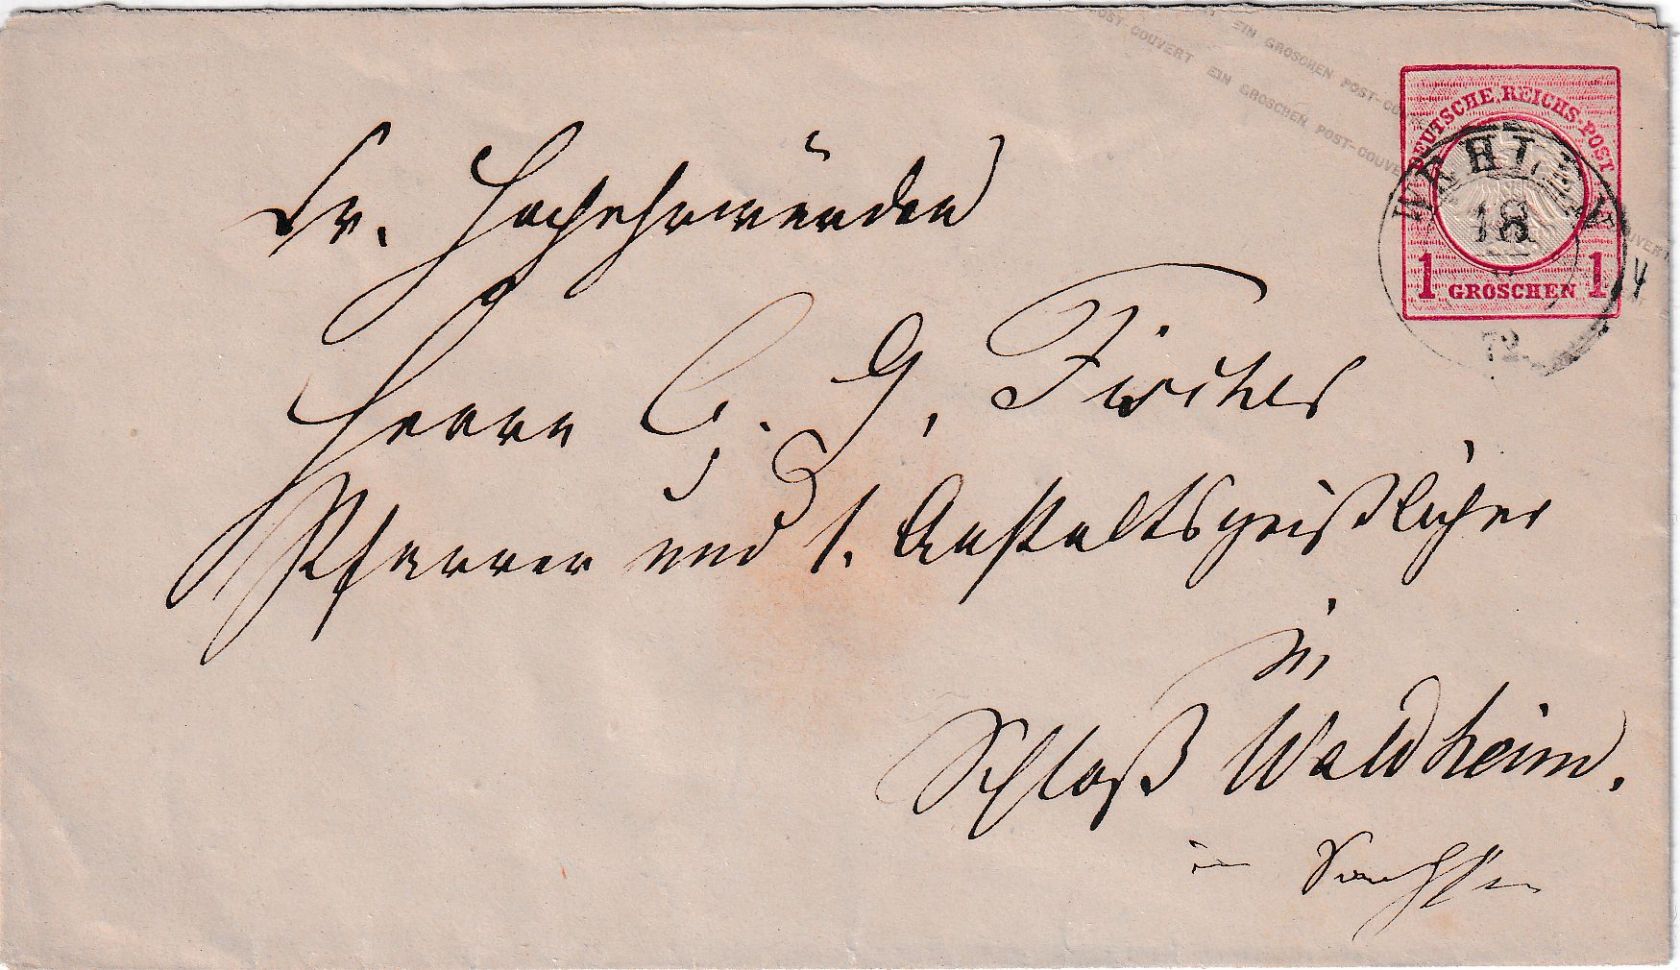 POST-COUVERT EIN GROSCHEN POST-COUVERT
EIN GROSCHEN POST-COU
DEUTSCHE REICHS-POST
18
1 GROSCHEN 1
72.
Sr. Hochehrwürden
Herrn C. G. Fischer
Pfarrer und 1. Anstaltsgeistlicher
in
Schloß Waldheim.
in Sachsen